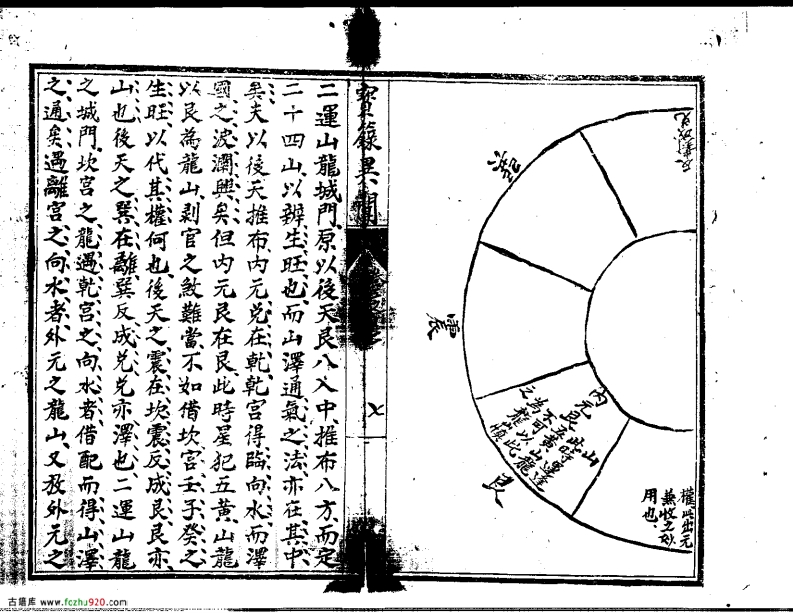 二運山龍城門原以後天艮八入中推布八方而定
二十四山以辨生旺也而山澤通氣之法亦在其中
矣夫以後天推布內元兑在乾乾宮得臨向水而澤
國之波瀾興矣但內元艮在艮此時星犯五黃山龍
以艮為龍山剥官之煞難當不如借坎宮壬子癸之
生旺以代其權何也後天之震在坎震反成艮艮亦
山也後天之巽在離巽反成兑兑亦澤也二運山龍
之城門坎宮之龍遇乾宮之向水者借配而得山澤
之通矣遇離宮之向水者外元之龍山又教外元之
震
艮
內元
艮此時
五黃運
不可以山龍
為
之
慎
權此出元
兼收之妙
用也
古籍库 www.fczhu920.com